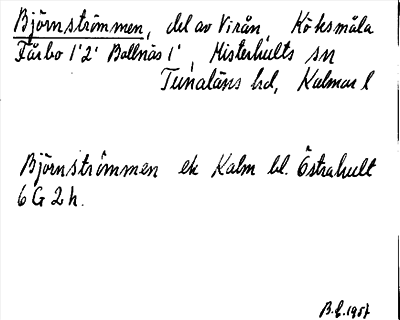 Björnströmmen, del av Virån, Köksmåla
Fårbo 1'2' Bollnäs 1', Misterhults sn
Tunaläns hd, Kalmar l
Björnströmmen ek Kalm bl. Östrahult
6 G 2 h.
B.L. 1957